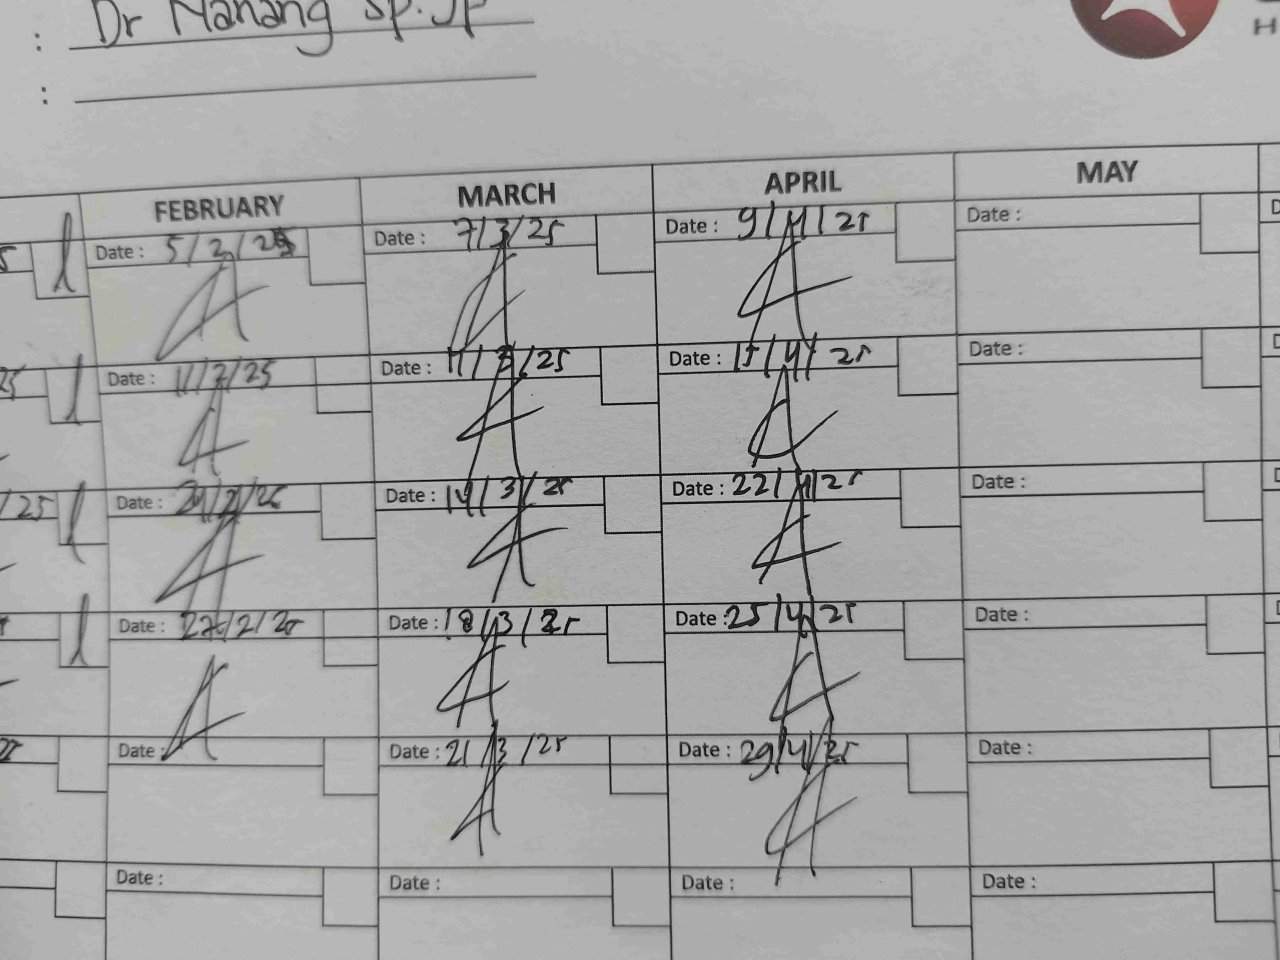 : Dr Nanang Sp.JP
:
H
FEBRUARY MARCH APRIL MAY
5 Date : 5/2/25 Date : 7/3/25 Date : 9/4/25 Date : D
25 Date : 11/2/25 Date : 11/3/25 Date : 15/4/25 Date : D
/25 Date : Date : 14/3/25 Date : 22/4/25 Date : D
Date : 27/2/25 Date : 18/3/25 Date : 25/4/25 Date : D
25 Date : Date : 21/3/25 Date : 29/4/25 Date : D
Date : Date : Date : Date :